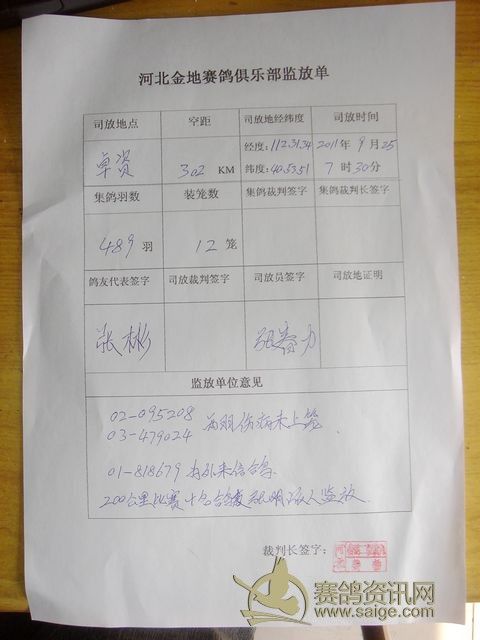 河北金地赛鸽俱乐部监放单
司放地点 空距 司放地经纬度 司放时间
卓资 302 KM 经度:112.31.34 2011年9月25
纬度:40.53.51 7时30分
集鸽羽数 装笼数 集鸽裁判签字 集鸽裁判长签字
489羽 12笼
鸽友代表签字 司放裁判签字 司放员签字 司放地证明
张彬 张春力
监放单位意见
02-095208
03-479024 两羽伤病未上笼.
01-818679 为外来信合鸽.
200公里比赛
监放.
裁判长签字:
赛鸽资讯网
www.saige.com